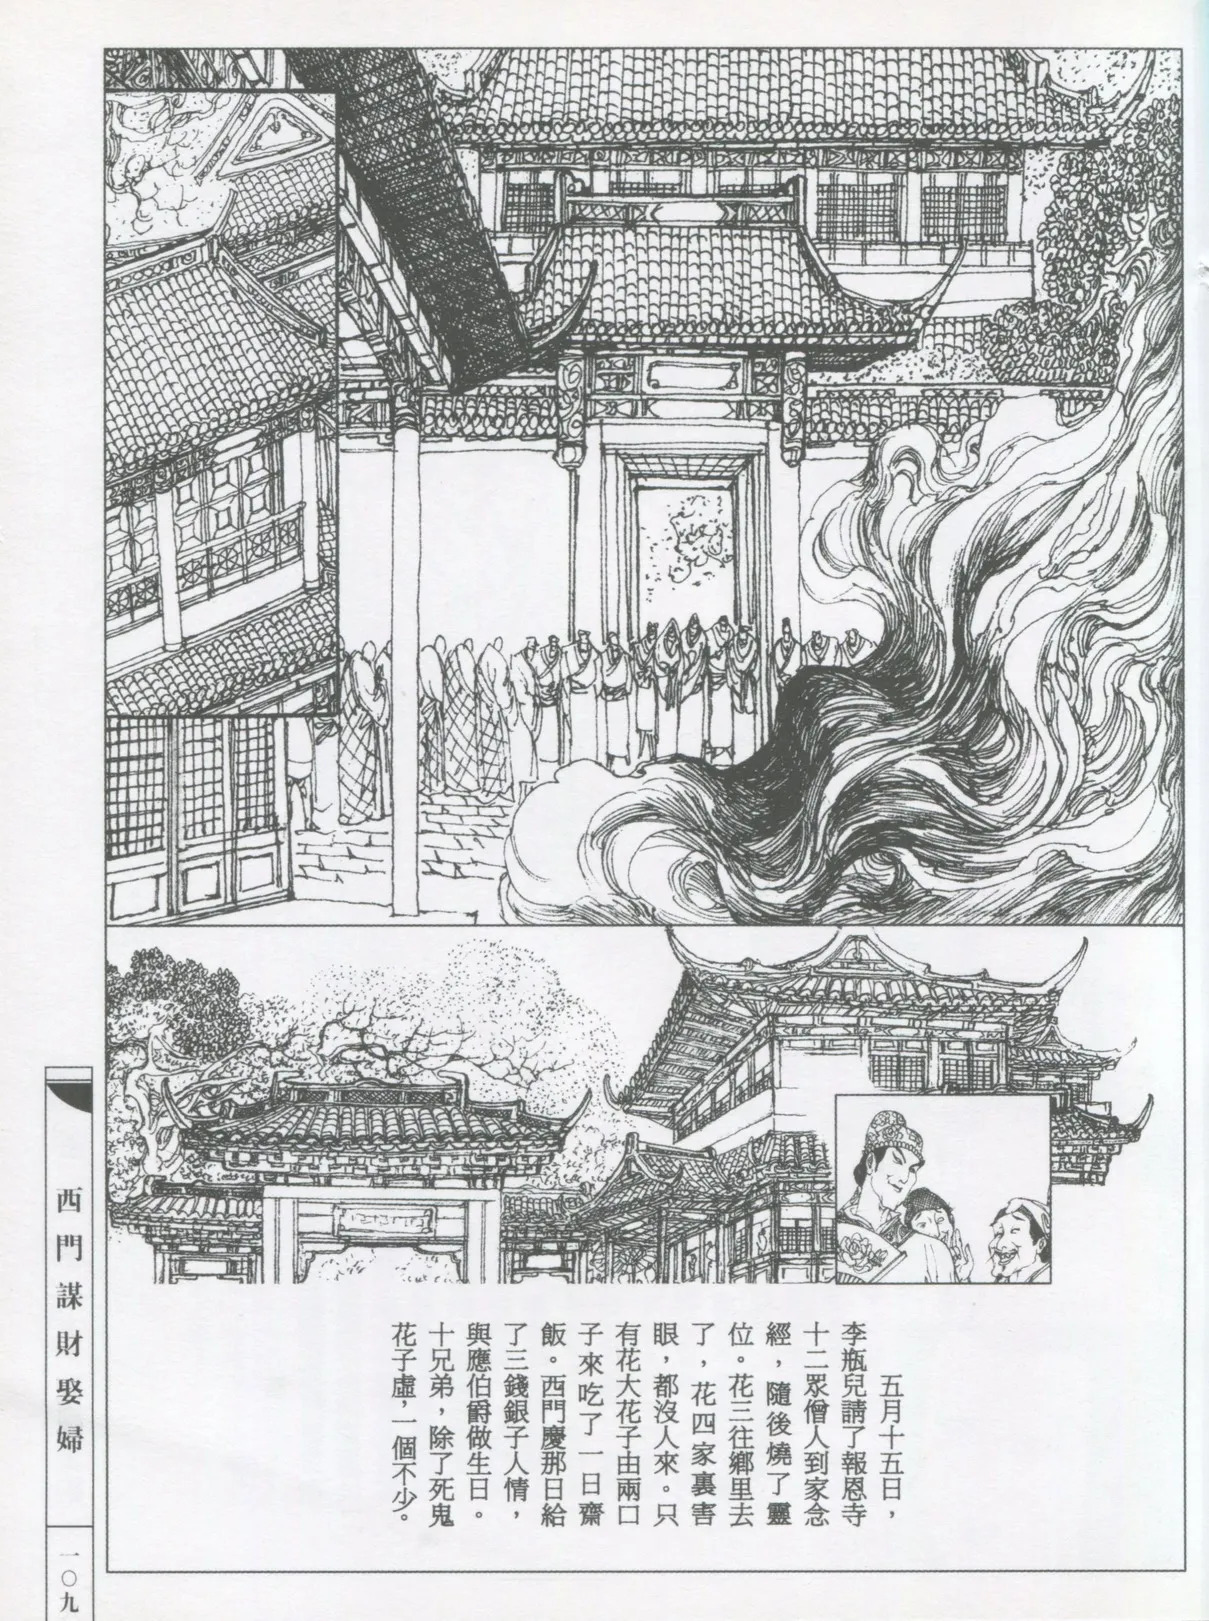 五月十五日，
李瓶兒請了報恩寺
十二眾僧人到家念
經，隨後燒了靈
位。花三往鄉里去
了，花四家裏害
眼，都沒人來。只
有花大花子由兩口
子來吃了一日齋
飯。西門慶那日給
了三錢銀子人情，
與應伯爵做生日。
十兄弟，除了死鬼
花子虛，一個不少。
西門謀財娶婦
一〇九